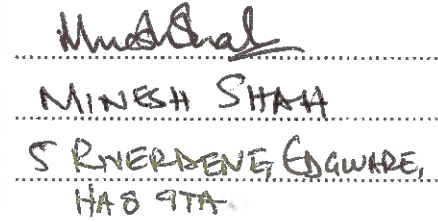 MINESH SHAH
5 RIVERDENE, EDGWARE,
HA8 9TA